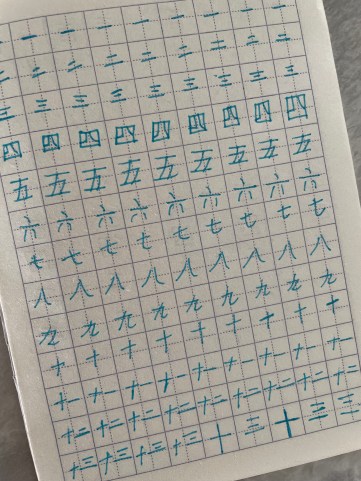 一 一 一 一 一 一 一 一
二 二 二 二 二 二 二 二 二
三 三 三 三 三 三 三 三 三
四 四 四 四 四 四 四 四 四
五 五 五 五 五 五 五 五 五
六 六 六 六 六 六 六 六 六
七 七 七 七 七 七 七 七 七
八 八 八 八 八 八 八 八 八
九 九 九 九 九 九 九 九 九
十 十 十 十 十 十 十 十 十
十一 十一 十一 十一 十一 十一 十一 十一 十一
十二 十二 十二 十二 十二 十二 十二 十二 十二
十三 十三 十三 十三 十 三 十 三 三